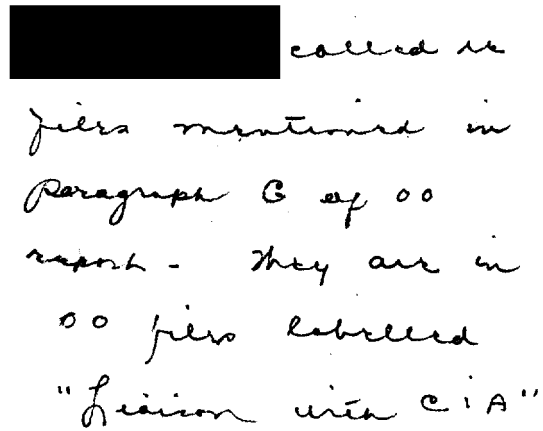 called re
files mentioned in
paragraph C of OO
report - They are in
OO files labelled
"Liaison with CIA"